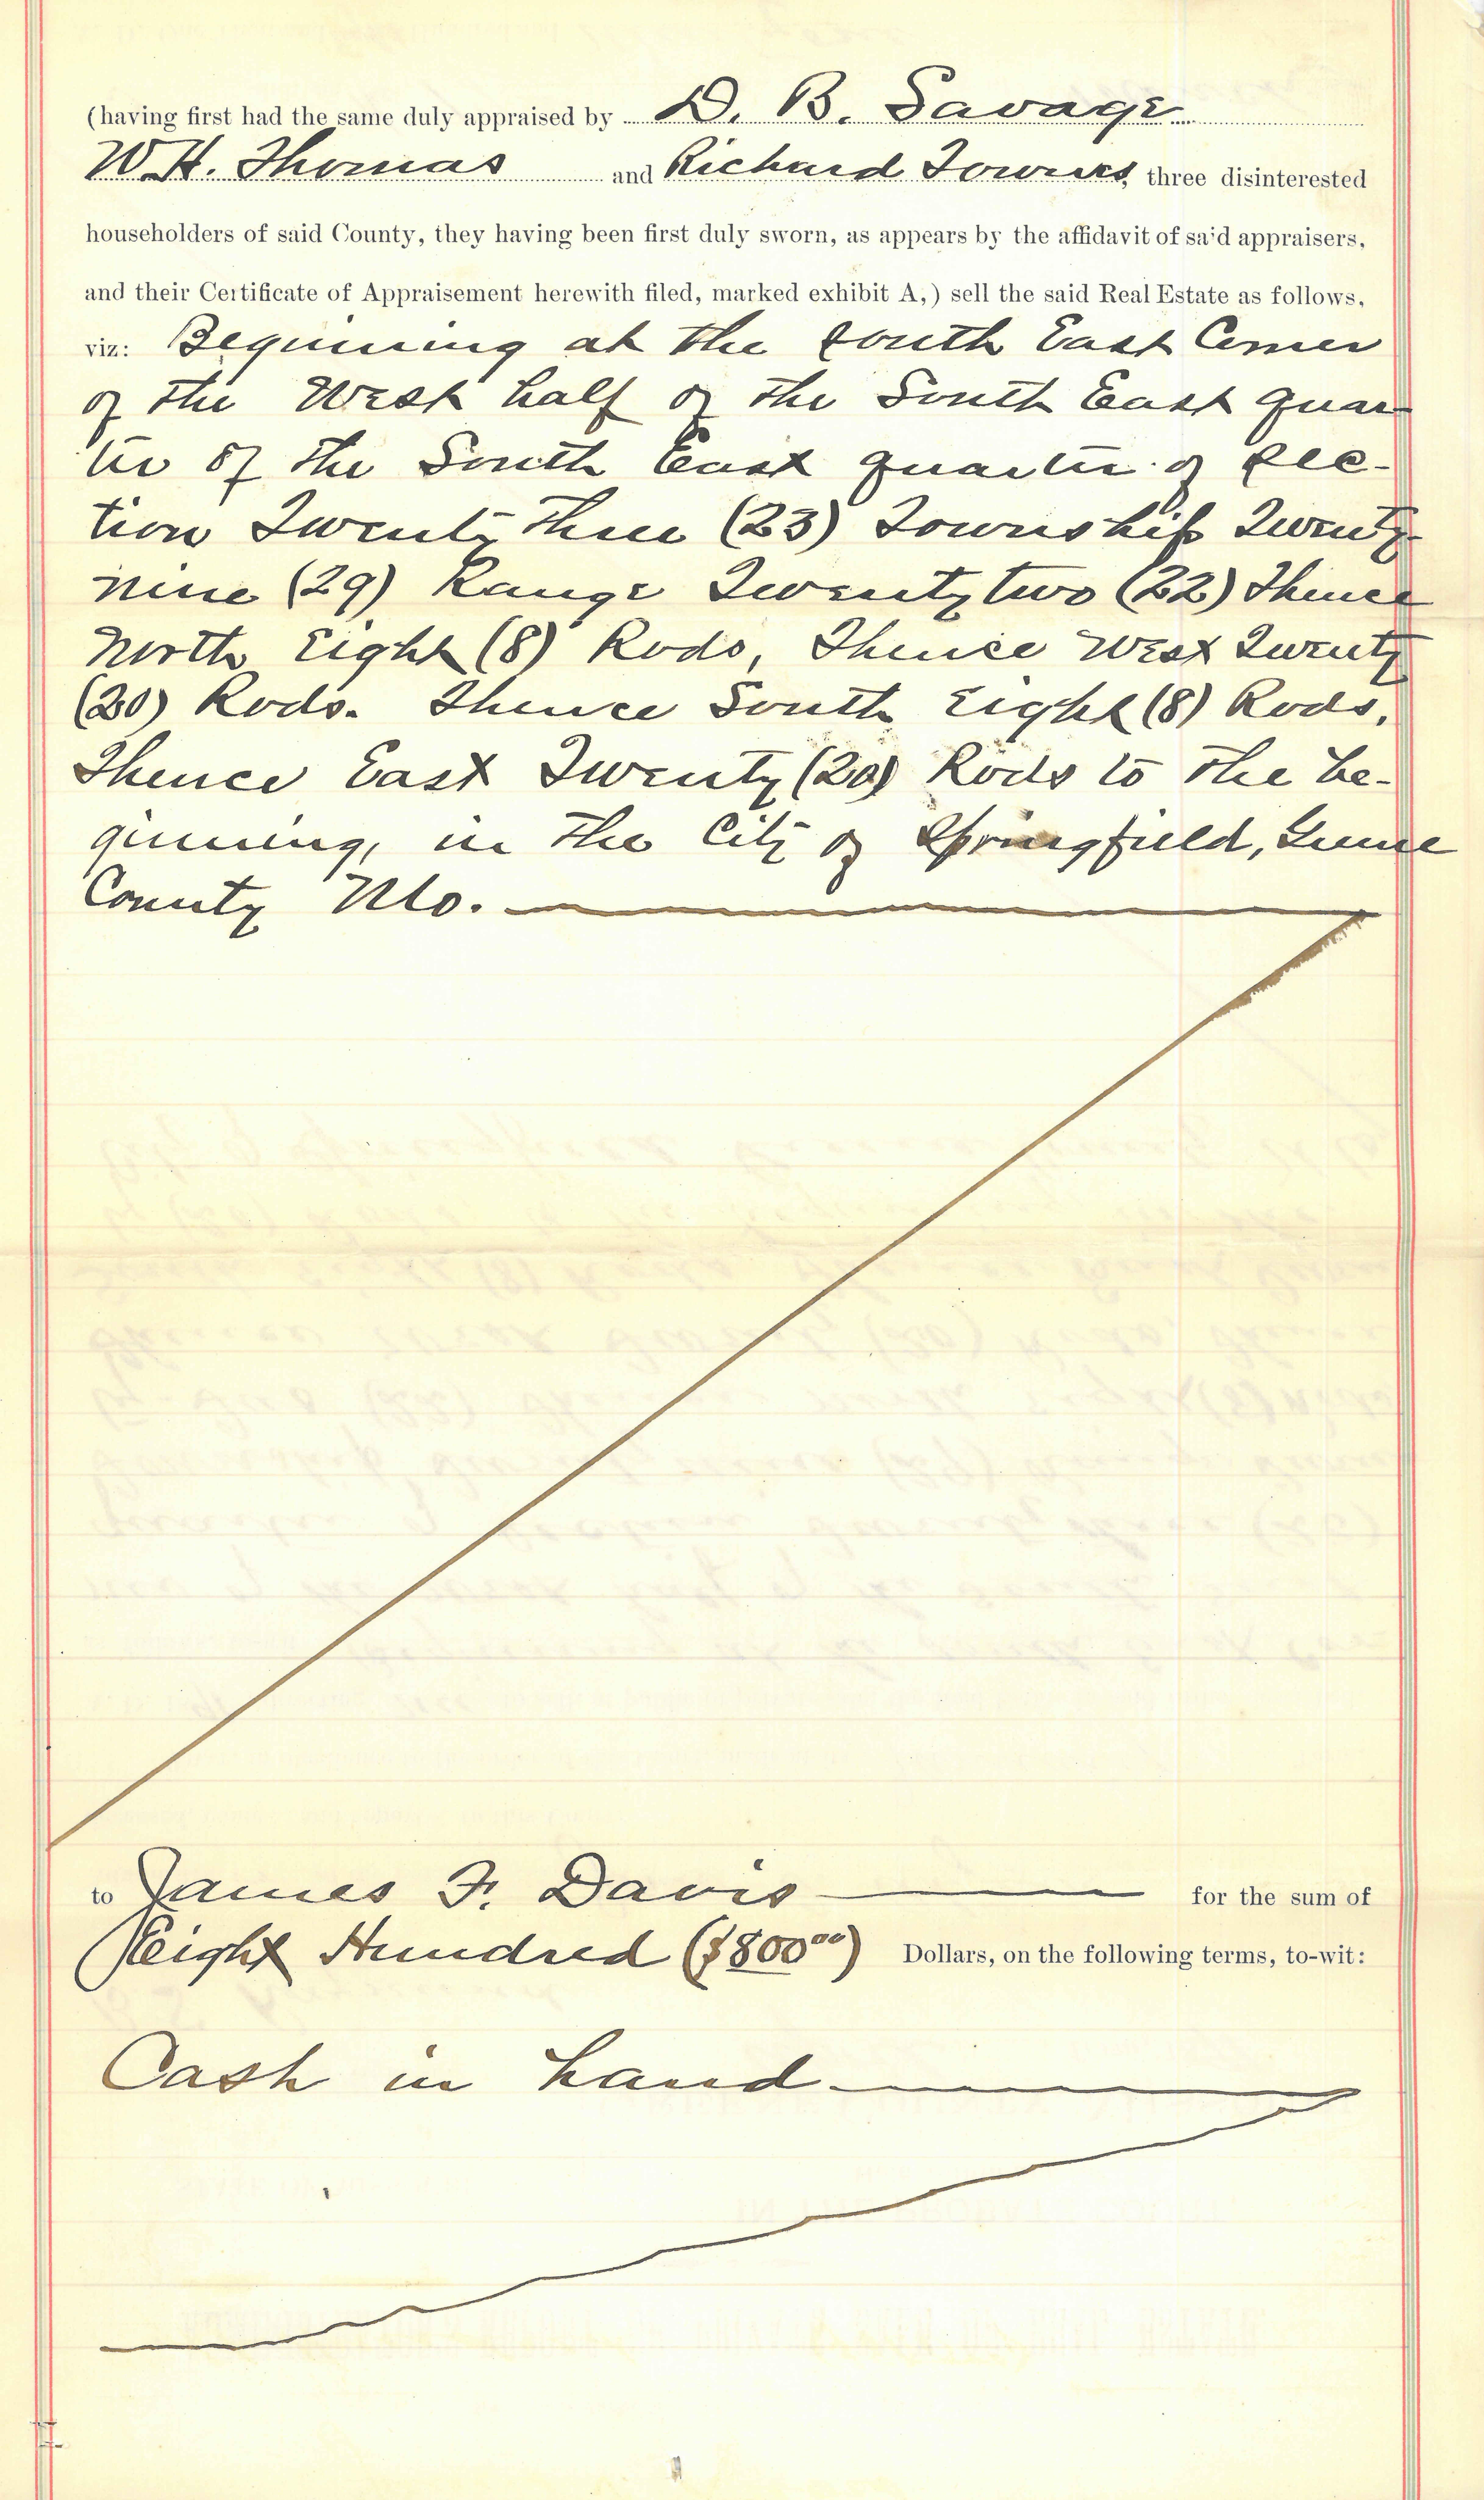 (having first had the same duly appraised by D. B. Savage
W. H. Thomas and Richard Townes, three disinterested
householders of said County, they having been first duly sworn, as appears by the affidavit of said appraisers,
and their Certificate of Appraisement herewith filed, marked exhibit A,) sell the said Real Estate as follows,
viz: Beginning at the South East Corner
of the West half of the South East quar-
ter of the South East quarter of Sec-
tion Twenty Three (23) Township Twenty-
nine (29) Range Twenty two (22) Thence
North Eight (8) Rods, Thence West Twenty
(20) Rods. Thence South Eight (8) Rods,
Thence East Twenty (20) Rods to the be-
ginning, in the City of Springfield, Greene
County Mo.
to James F. Davis for the sum of
Eight Hundred ($800.00) Dollars, on the following terms, to-wit:
Cash in hand